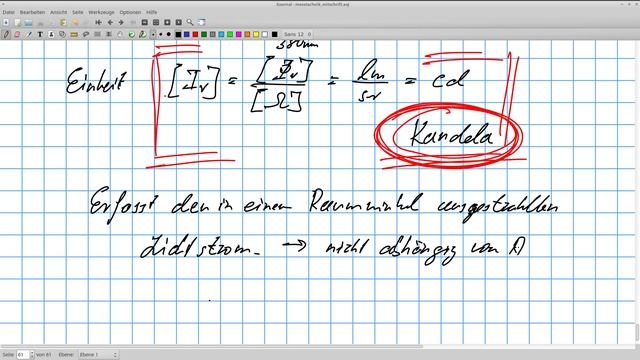 Xournal - messtechnik_mitschrift.xoj
Datei Bearbeiten Ansicht Seite Werkzeuge Optionen Hilfe
Sans 12
380nm
Einheit [Iv] = [Φv] / [Ω] = lm / sr = cd
Kandela
Erfasst den in einem Raumwinkel ausgestrahlten
Lichtstrom. → nicht abhängig von A
Seite 61 von 61 Ebene: Ebene 1